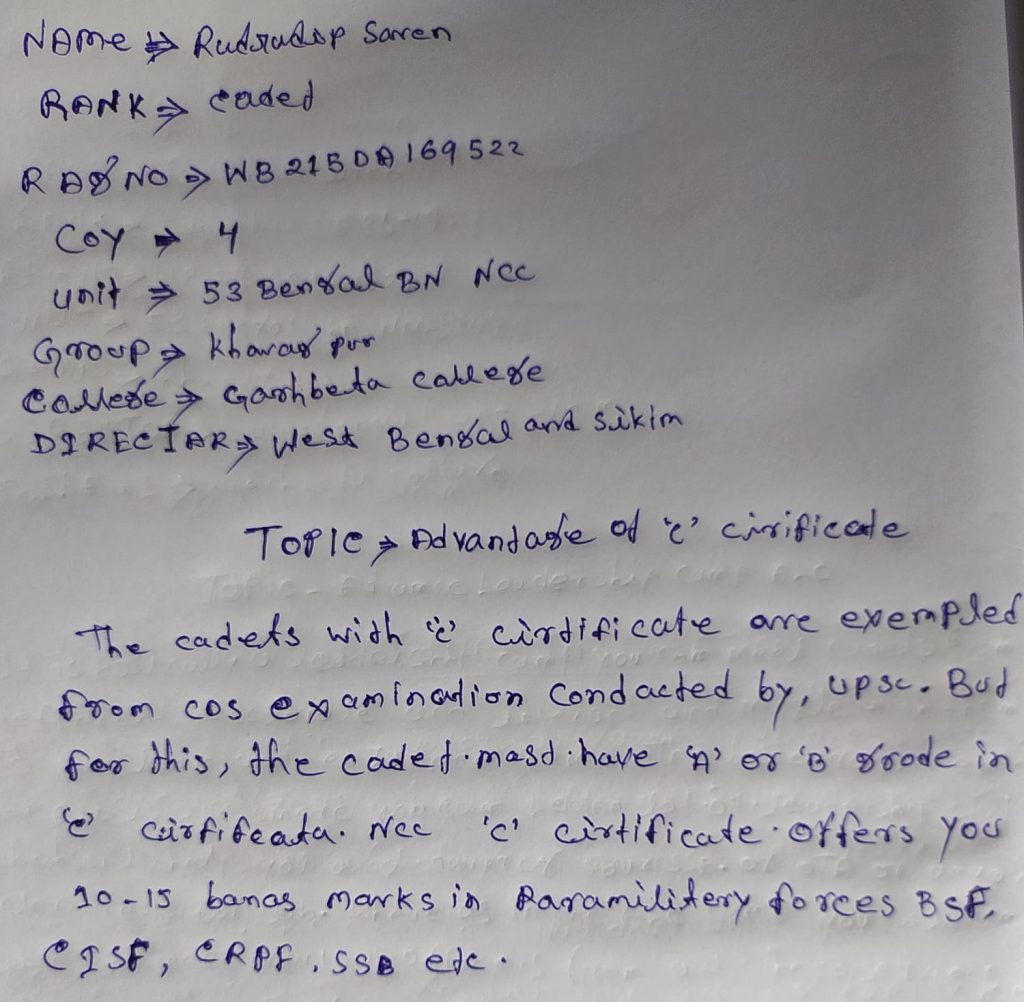 NAME ⇒ Rudradip Saren
RANK ⇒ caded
RAG NO ⇒ WB21SDA169522
COY ⇒ 4
unit ⇒ 53 Bengal BN NCC
Group ⇒ kharag pur
College ⇒ Garhbeta callege
DIRECTAR ⇒ West Bengal and Sikim
TOPIC ⇒ Advantage of 'c' cirificate
The cadets with 'c' cirdificate are exempled
from cos examination condacted by, UPSC. Bud
for this, the caded masd have 'A' or 'B' grode in
'c' cirfifeata. Ncc 'c' cirtificate offers you
10-15 banas marks in Paramilitery forces BSF,
CISF, CRPF, SSB etc.